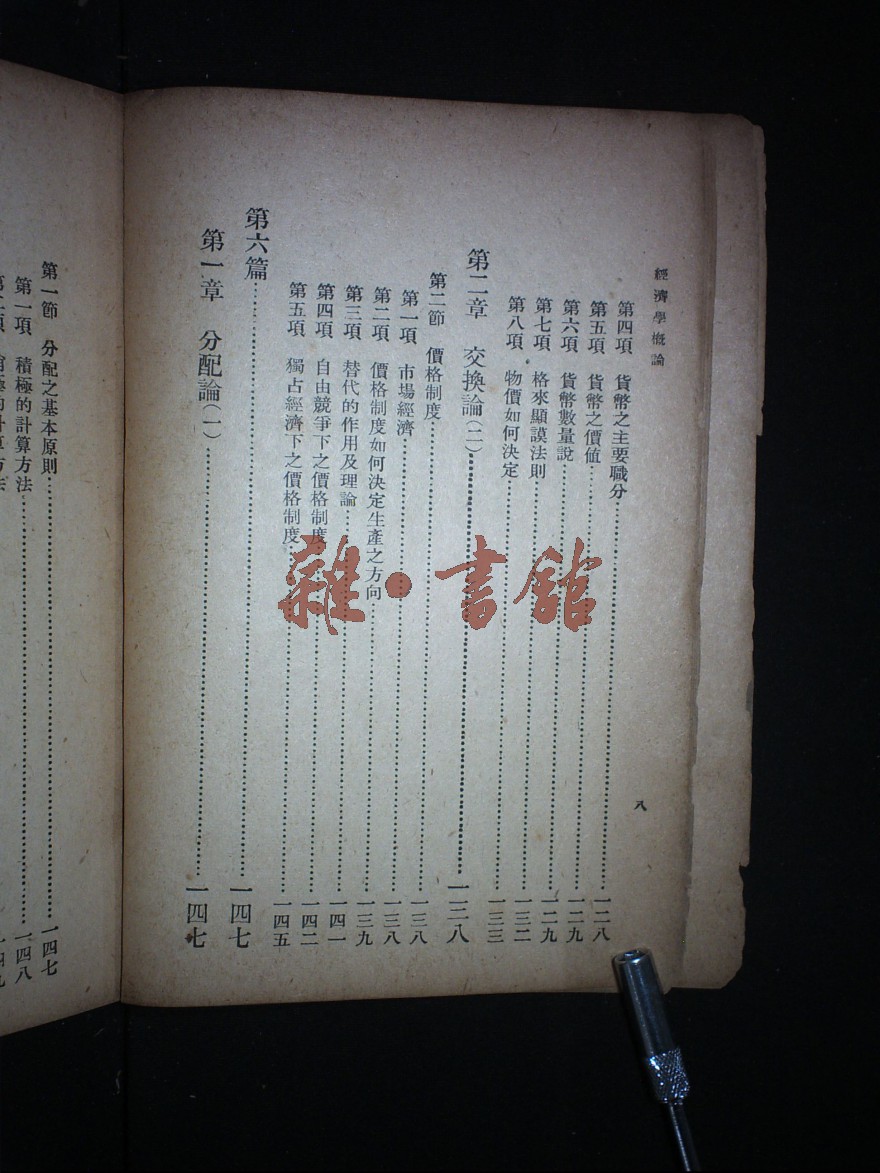 經濟學概論
八
第四項 貨幣之主要職分……一二八
第五項 貨幣之價值……一二九
第六項 貨幣數量說……一二九
第七項 格來顯謨法則……一三二
第八項 物價如何決定……一三三
第二章 交換論(二)……一三八
第二節 價格制度……一三八
第一項 市場經濟……一三八
第二項 價格制度如何決定生產之方向……一三九
第三項 替代的作用及理論……一四一
第四項 自由競爭下之價格制度……一四二
第五項 獨占經濟下之價格制度……一四五
第六篇……一四七
第一章 分配論(一)……一四七
第一節 分配之基本原則……一四七
第一項 積極的計算方法……一四八
雜·書館